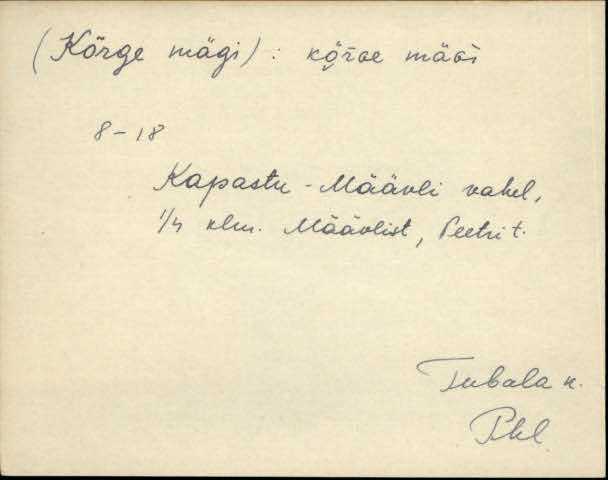 (Kõrge mägi) : kõ̭r̄ɢe mäɢi
8-18
Kapastu - Määvli vahel,
1/4 klm. Määvlist, Peetri t.
Tubala k.
Phl